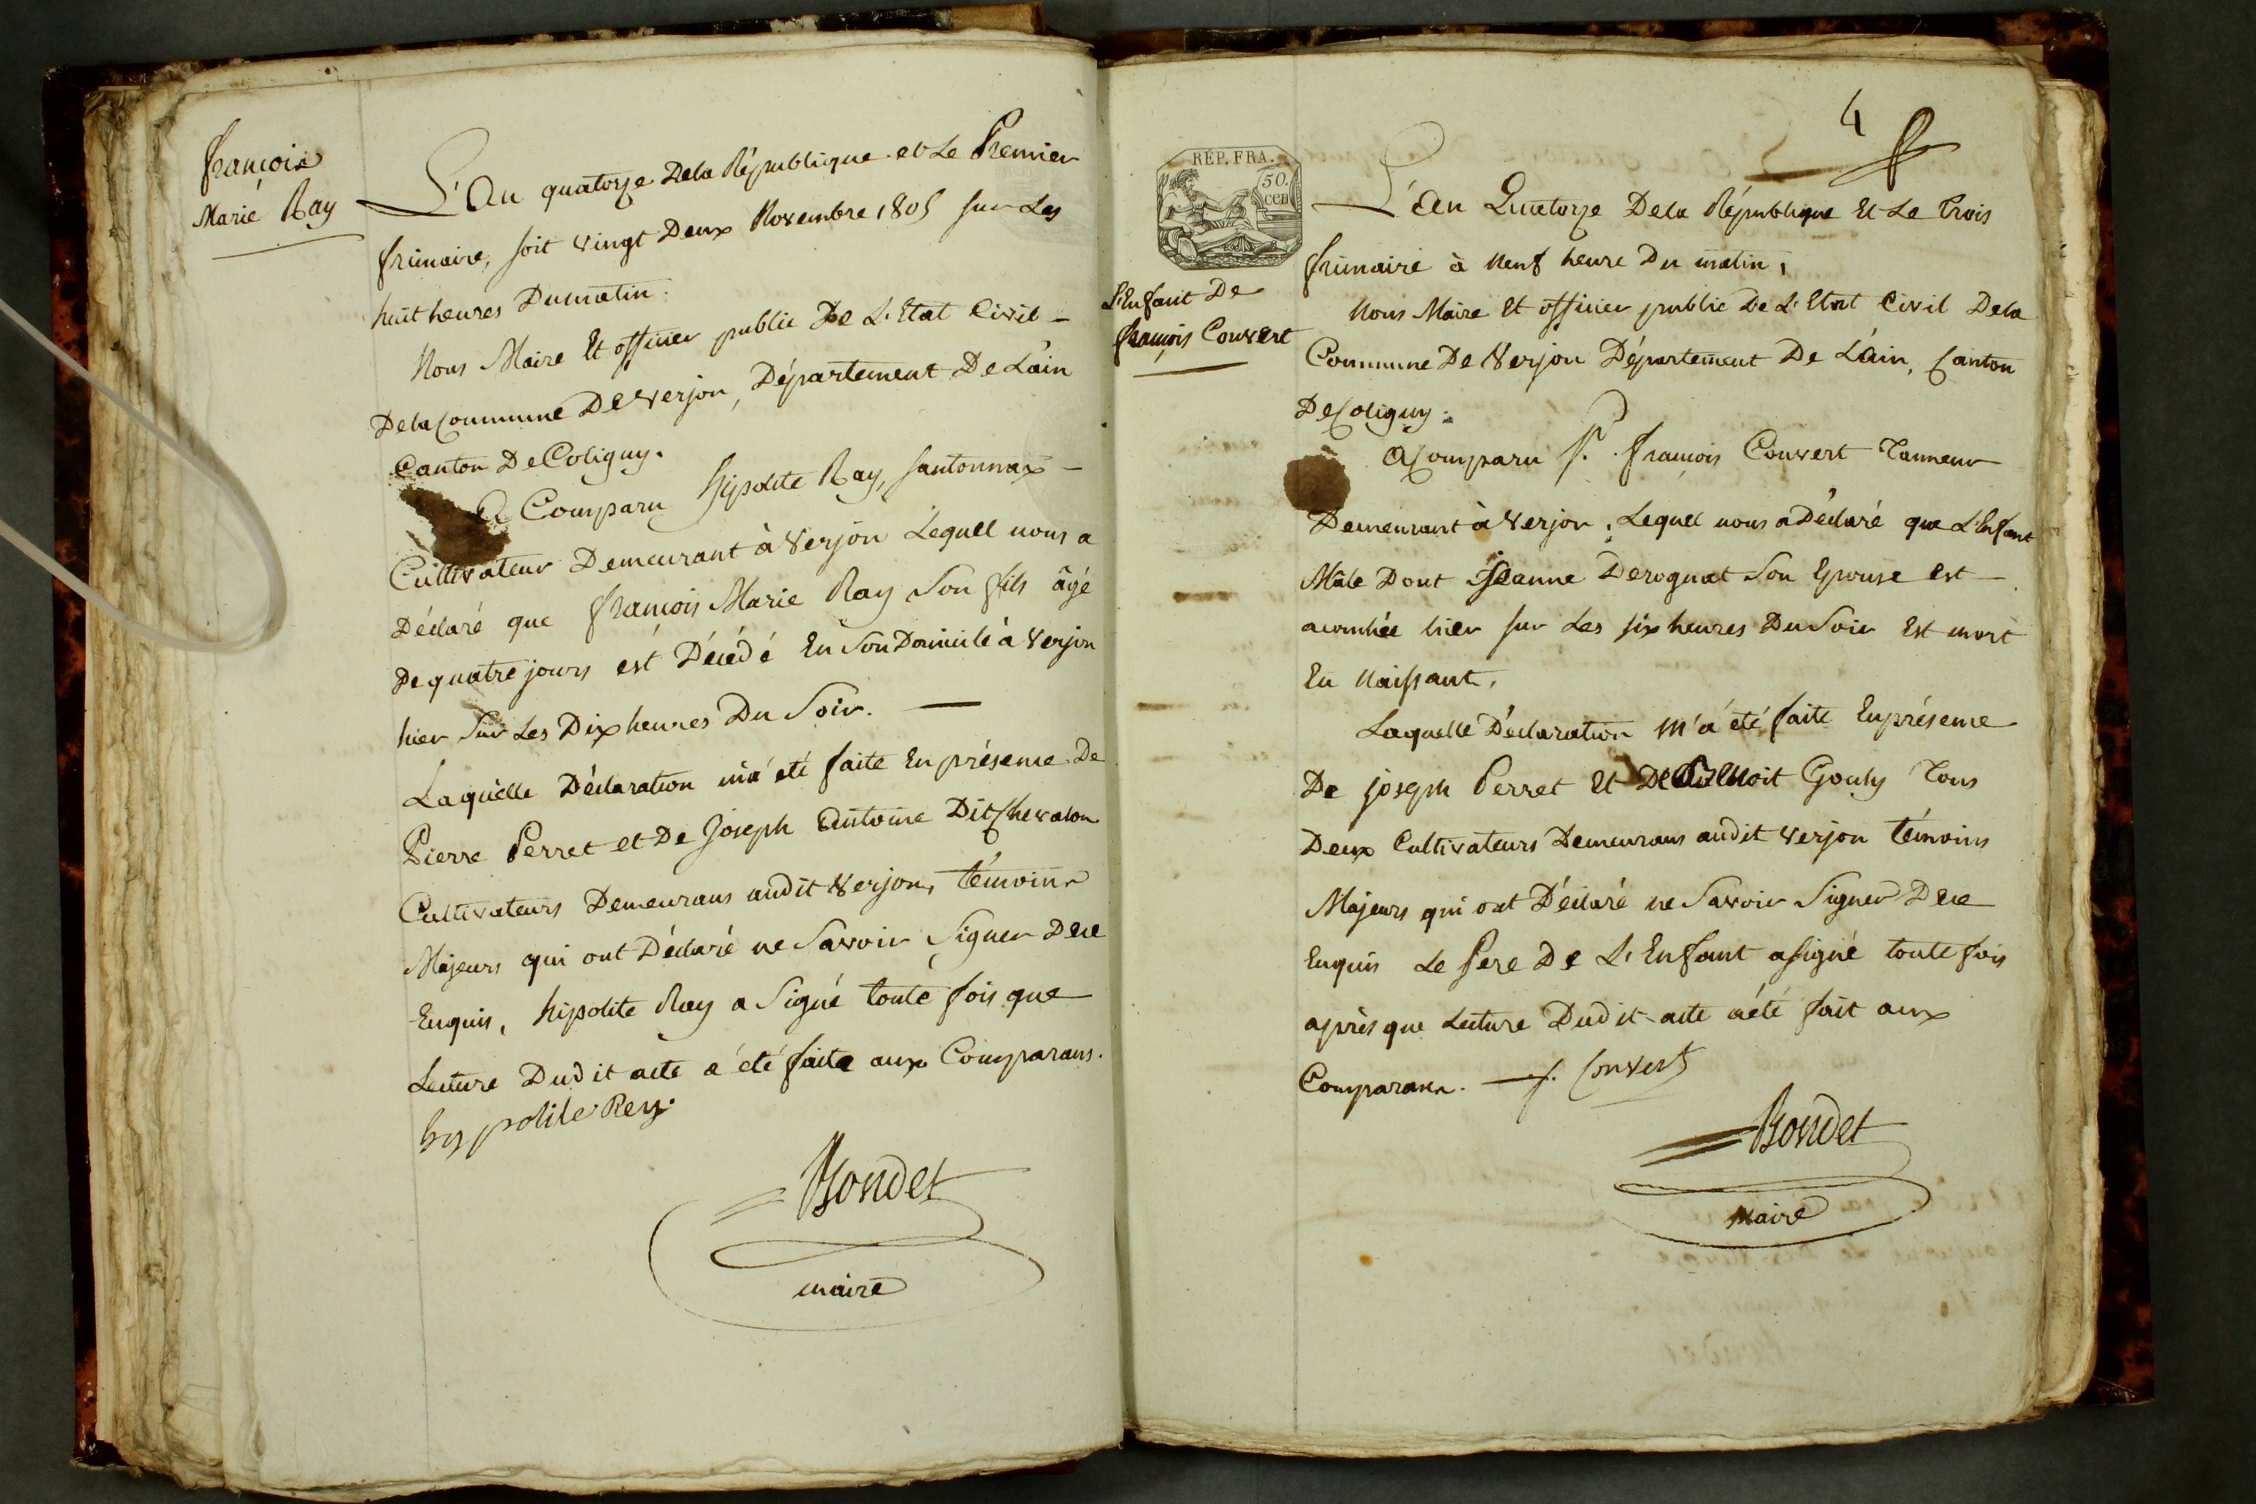 françois
Marie Ray
L'An quatorze Dela République et Le Premier
frimaire, soit vingt Deux Novembre 1805 sur Les
huit heures Dumatin.
Nous Maire Et officier public De L'Etat Civil -
Dela Commune De Verjon, Département De L'ain
Canton De Coligny.
A Comparu hipolite Ray, santonnax -
Cultivateur Demeurant à Verjon Lequel nous a
Déclaré que françois Marie Ray Son fils âgé
De quatre jours est Décédé En Son Domicile à Verjon
hier Sur Les Dix heures Du Soir. —
Laquelle Déclaration m'a été faite En présence De
Pierre Perret et De Joseph Antoine Dit Chevalon
Cultivateurs Demeurans audit Verjon, témoins
Majeurs qui ont Déclaré ne Savoir Signer Dece
Enquis, hipolite Ray a Signé toute fois que
Lecture Dudit acte a été faite aux Comparans.
hyppolite Rey.
Bondet
maire
4
RÉP. FRA.
50.
cen
L'Enfant De
françois Convert
L'an Quatorze Dela République Et Le Trois
frimaire à Neuf heure Du matin,
Nous Maire Et officier public De L'Etat Civil Dela
Commune De Verjon Département De L'ain, Canton
De Coligny.
A Comparu Sr. françois Convert Tanneur
Demeurant à Verjon, Lequel nous a Déclaré que L'Enfant
Mâle Dont Jeanne Deroguat Son Epouse est -
acouchée hier sur Les six heures Du Soir Est mort
En Naissant,
Laquelle Déclaration M'a été faite En présence
De joseph Perret Et De Benoit Gouly Tous
Deux Cultivateurs Demeurans audit Verjon témoins
Majeurs qui ont Déclaré ne Savoir Signer Dece
Enquis Le Pere De L'Enfant a signé toute fois
après que Lecture Dudit acte a été fait aux
Comparans. — f. Convert
Bondet
maire